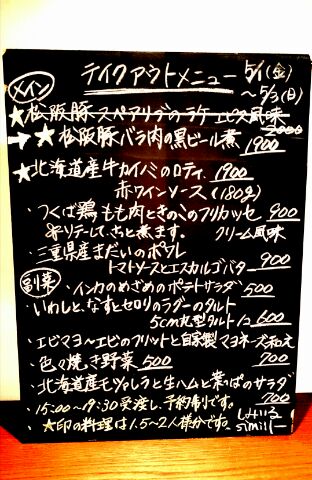 テイクアウトメニュー 5/1(金)
～5/3(日)
メイン
★松阪豚スペアリブのラケ エピス風味
2000
→★松阪豚バラ肉の黒ビール煮
1900
★北海道産牛カイノミのロティ 1900
赤ワインソース (180g)
・つくば鶏もも肉ときのこのフリカッセ 900
ソテーして、さっと煮ます。 クリーム風味
・三重県産まだいのポワレ
トマトソースとエスカルゴバター 900
副菜
・インカのめざめのポテトサラダ 500
・いわしと、なすとセロリのラグーのタルト
5cm丸型タルト1コ 600
・エビマヨ～エビのフリットと自家製マヨネーズ和え
700
・色々焼き野菜 500
・北海道産モッツァレラと生ハムと葉っぱのサラダ
700
・15:00～19:30受渡し、予約制です。
★印の料理は1.5～2人様分です。
しみいる
similii